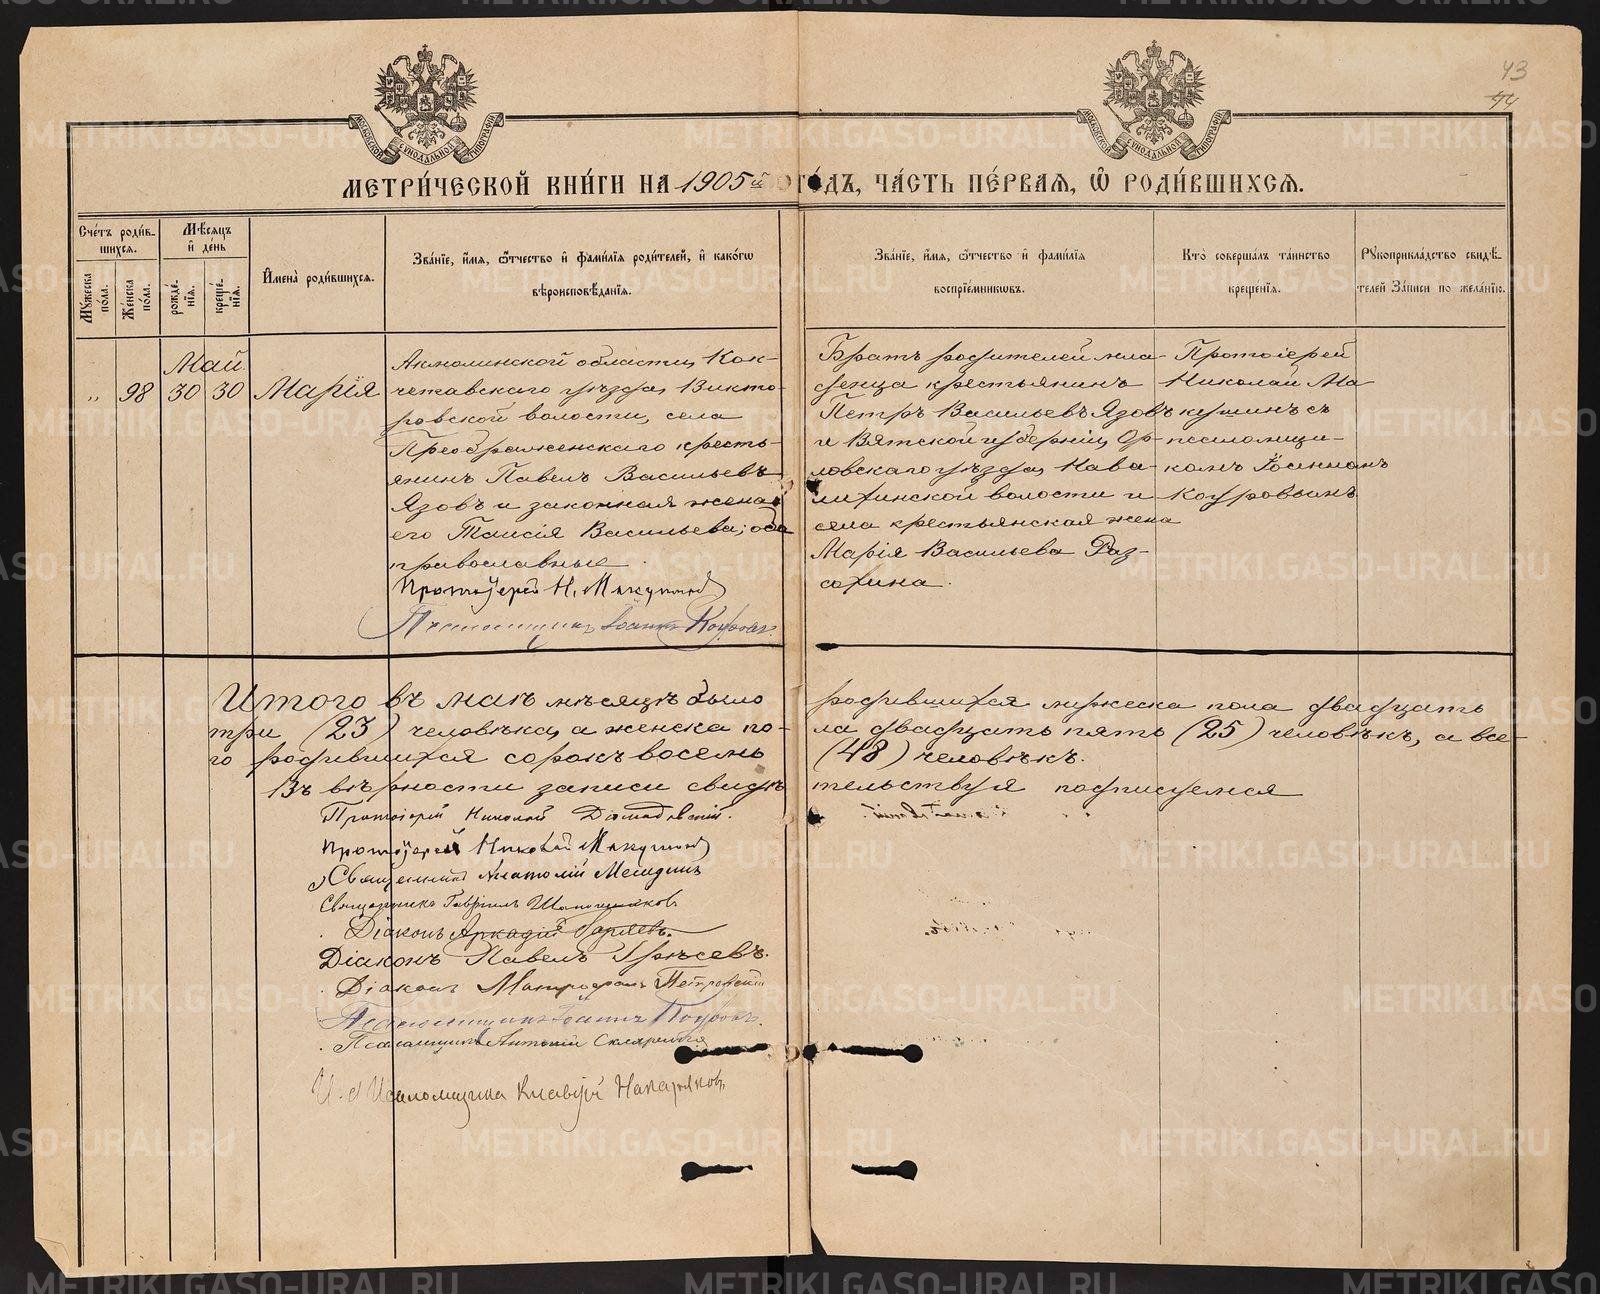 43
44
МОСКОВСКОЙ СѴНОДАЛЬНОЙ ТИПОГРАФІИ
МОСКОВСКОЙ СѴНОДАЛЬНОЙ ТИПОГРАФІИ
МЕТРИ́ЧЕСКОЙ КНИ́ГИ НА 1905й ГО́ДЪ, ЧА́СТЬ ПЕ́РВАЯ, Ѡ РОДИ́ВШИХСЯ.
Сче́тъ роди́в-
шихся.
Мѣ́сяцъ
и де́нь
Му́жеска по́ла.
Же́нска по́ла.
рожде́-
нія.
креще́-
нія.
Имена̀ роди́вшихся.
Зва́ніе, и́мя, ѻ҆́тчество и фами́лія роди́телей, и како́гѡ
вѣроисповѣ́данія.
Зва́ніе, и́мя, ѻ҆́тчество и фами́лія
воспріе́мникѡвъ.
Кто̀ соверша́лъ та́инство
креще́нія.
Рукоприкла́дство свидѣ́-
телей За́писи по жела́нію.
Май
„ 98 30 30 Марія
Акмолинской области, Кок-
четавскаго уѣзда, Викто-
ровской волости, села
Преображенскаго кресть-
янинъ Павелъ Васильевъ
Язовъ и законная жена
его Таисія Васильева; оба
православные.
Протоіерей Н. Мякушинъ
Псаломщикъ Іоаннъ
Братъ родителей мла-
денца крестьянинъ
Петръ Васильевъ Язовъ
и Вятской губерніи, Ор-
ловскаго уѣзда,
волости и
села крестьянская жена
Марія Васильева Раз-
сохина.
Протоіерей
Николай Мя-
кушинъ съ
псаломщи-
комъ Іоанномъ
Итого въ маѣ мѣсяцѣ было родившихся мужеска пола двадцать
три (23) человѣка, а женска по-ла двадцать пять (25) человѣкъ, а все-
го родившихся сорокъ восемь (48) человѣкъ.
Въ вѣрности записи свидѣтельствуя подписуемся
Протоіерей Николай
Протоіерей Николай Мякушинъ
Священникъ Анатолій
Священникъ Гавріилъ
Діаконъ Аркадій
Діаконъ Павелъ
Діаконъ Митрофанъ Петровскій
Псаломщикъ Іоаннъ
Псаломщикъ Антоній
И. д. Псаломщика
METRIKI.GASO-URAL.RU